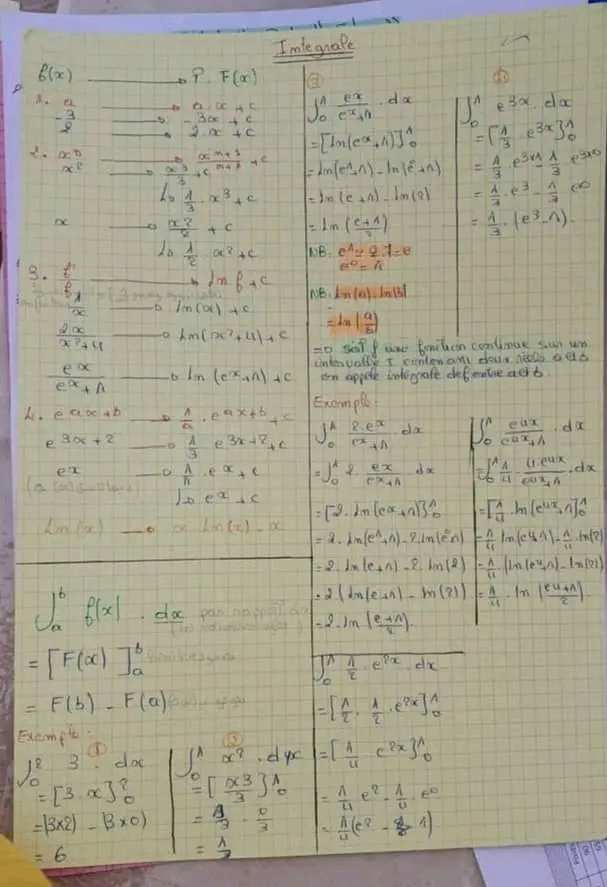 Integrale
f(x) → P. F(x)
1. a → a.x + c
-3 → -3x + c
2 → 2.x + c
2. xⁿ → x^(n+1)/(n+1) + c
x² → x³/3 + c
↳ 1/3 . x³ + c
x → x²/2 + c
↳ 1/2 . x² + c
3. f'/f → ln f + c
1/x → ln(x) + c
2x/(x²+4) → ln(x²+4) + c
eˣ/(eˣ+1) → ln(eˣ+1) + c
4. e^(ax+b) → 1/a . e^(ax+b) + c
e^(3x+2) → 1/3 e^(3x+2) + c
eˣ → 1/1 . eˣ + c
↳ eˣ + c
ln(x) → x ln(x) - x
∫ₐᵇ f(x) . dx par rapport à x
= [F(x)]ₐᵇ
= F(b) - F(a)
Exemple :
①
∫₀² 3 . dx
= [3.x]₀²
= (3×2) - (3×0)
= 6
②
∫₀¹ x² . dx
= [x³/3]₀¹
= 1/3 - 0/3
= 1/3
③
∫₀¹ eˣ/(eˣ+1) . dx
= [ln(eˣ+1)]₀¹
= ln(e¹+1) - ln(e⁰+1)
= ln(e+1) - ln(2)
= ln((e+1)/2)
NB: e¹ = 2.7 = e
e⁰ = 1
NB: ln(a) - ln(b)
= ln(a/b)
④
∫₀¹ e^(3x) . dx
= [1/3 . e^(3x)]₀¹
= 1/3 . e^(3×1) - 1/3 e^(3×0)
= 1/3 . e³ - 1/3 e⁰
= 1/3 . (e³-1).
=> soit f une fonction continue sur un
intervalle I contenant deux réels a et b
on appele intégrale def entre a et b.
Exemple:
∫₀¹ 2.eˣ/(eˣ+1) . dx
= ∫₀¹ 2. eˣ/(eˣ+1) . dx
= [2. ln(eˣ+1)]₀¹
= 2. ln(e¹+1) - 2. ln(e⁰+1)
= 2. ln(e+1) - 2. ln(2)
= 2. (ln(e+1) - ln(2))
= 2. ln((e+1)/2).
∫₀¹ e^(4x)/(e^(4x)+1) . dx
= ∫₀¹ 1/4 . 4.e^(4x)/(e^(4x)+1) . dx
= [1/4 . ln(e^(4x)+1)]₀¹
= 1/4 ln(e⁴+1) - 1/4 . ln(2)
= 1/4 . (ln(e⁴+1) - ln(2))
= 1/4 . ln((e⁴+1)/2).
∫₀¹ 1/2 . e^(2x) . dx
= [1/2 . 1/2 . e^(2x)]₀¹
= [1/4 e^(2x)]₀¹
= 1/4 e² - 1/4 . e⁰
= 1/4 (e² - 1)